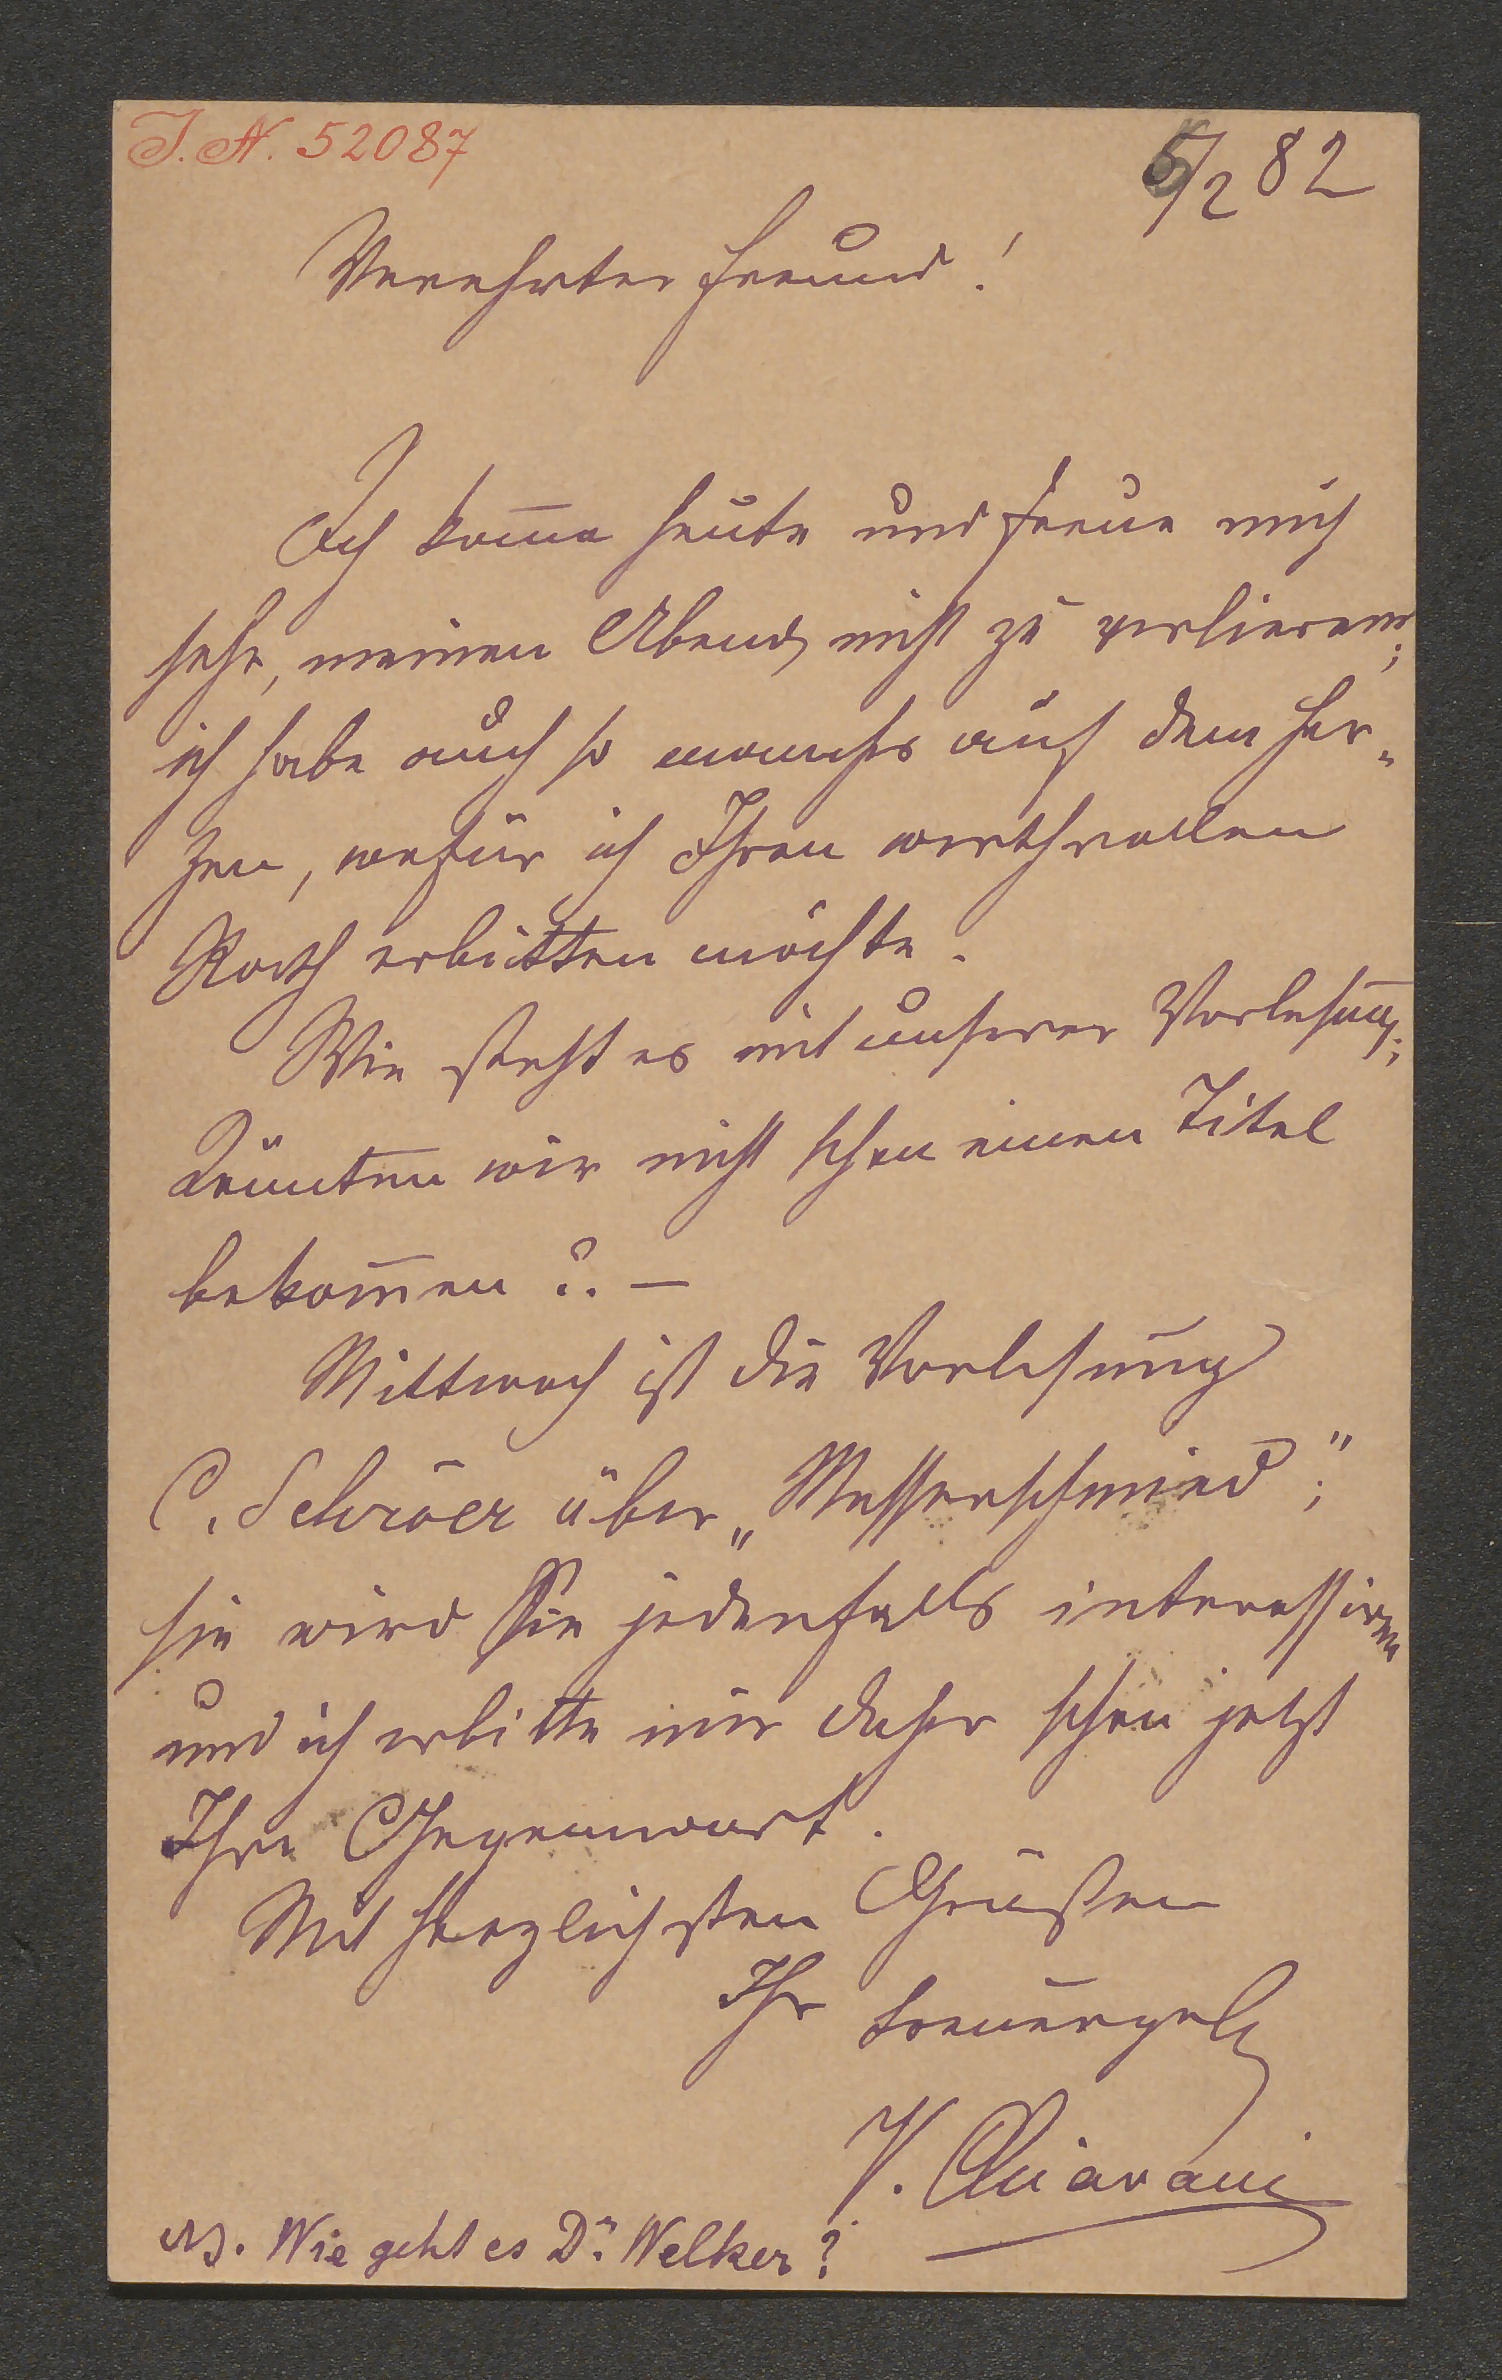 J. N. 52087
6/2 82
Verehrter Freund!
Ich kom̅e heute und freue mich
sehr, meinen Abend nicht zu verlieren;
ich habe auch so manches auf dem Her-
zen, wofür ich Ihren werthvollen
Rath erbitten möchte.
Wie steht es mit unserer Vorlesung;
könnten wir nicht schon einen Titel
bekom̅en?. —
Mittwoch ist die Vorlesung
C. Schröer über „Messerschmied";
sie wird Sie jedenfalls interessiren
und ich erbitte mir daher schon jetzt
Ihre Gegenwart.
Mit herzlichsten Grüßen
Ihr treuergeb
V. Chiavacci
NB. Wie geht es Dr. Welker?